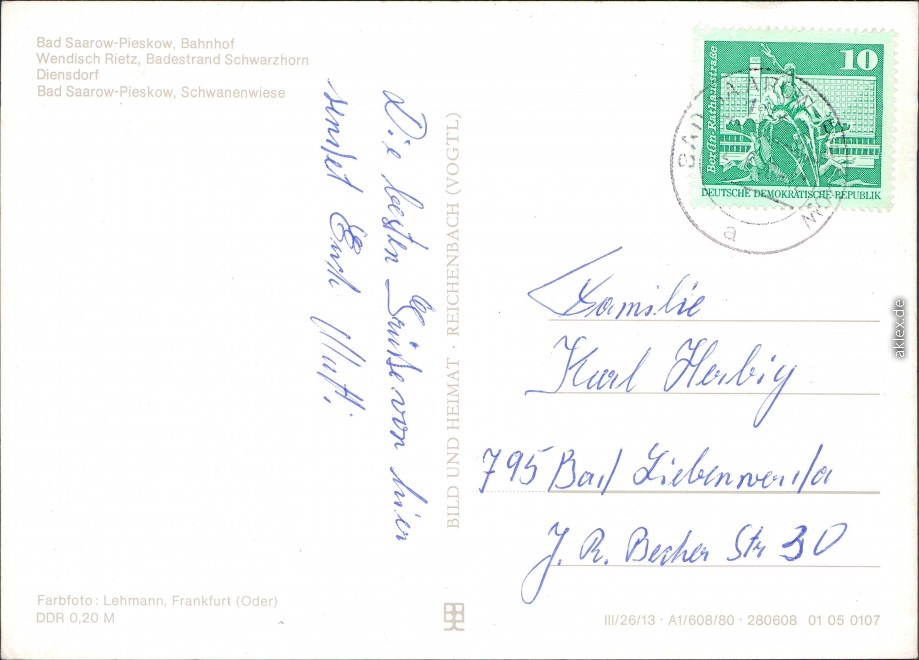 Bad Saarow-Pieskow, Bahnhof
Wendisch Rietz, Badestrand Schwarzhorn
Diensdorf
Bad Saarow-Pieskow, Schwanenwiese
Die besten Grüße von hier
sendet Euch Mutti
BILD UND HEIMAT · REICHENBACH (VOGTL)
Berlin-Rathausstraße
10
DEUTSCHE DEMOKRATISCHE REPUBLIK
BAD SAAROW-PIESKOW
a
Familie
Karl Herbig
795 Bad Liebenwerda
J. R. Becher Str 30
Farbfoto: Lehmann, Frankfurt (Oder)
DDR 0,20 M
III/26/13 · A1/608/80 · 280608 01 05 0107
aklex.de